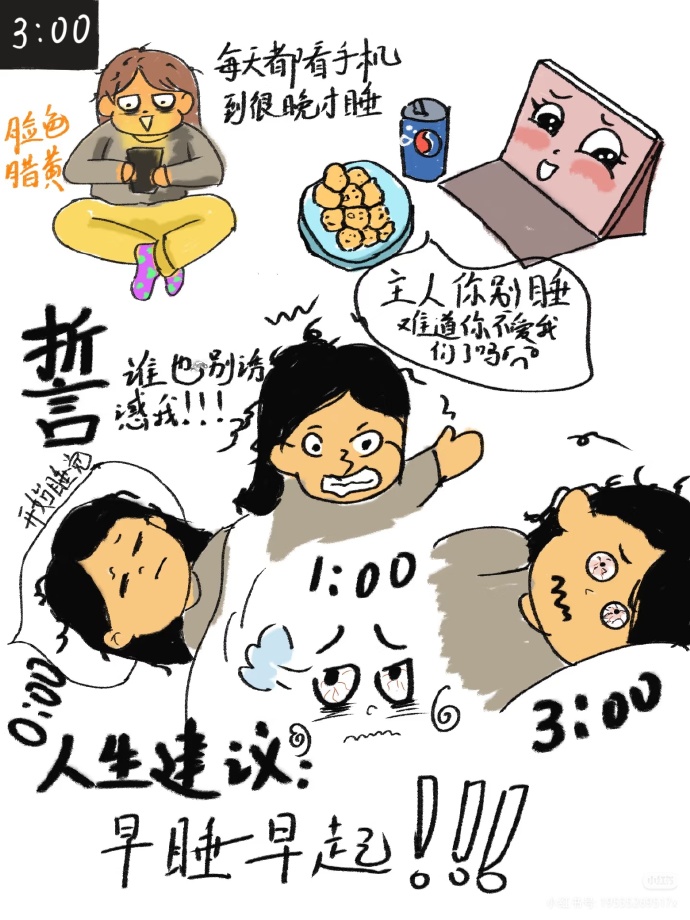 3:00
每天都看手机
到很晚才睡
脸色
腊黄
主人你别睡
难道你不爱我
们了吗
哲
谁也别诱
惑我!!!
开始睡觉
0:00
1:00
3:00
人生建议:
早睡早起!!!